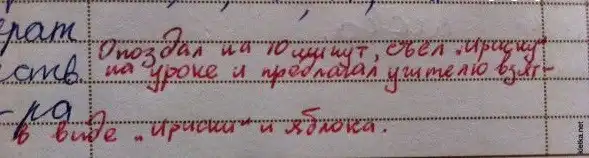 ерат
Опоздал на 10 минут, съел „Ириску"
ств на уроке и предлагал учителю взят-
-ра
в виде „Ириски" и яблока.
kletka.net